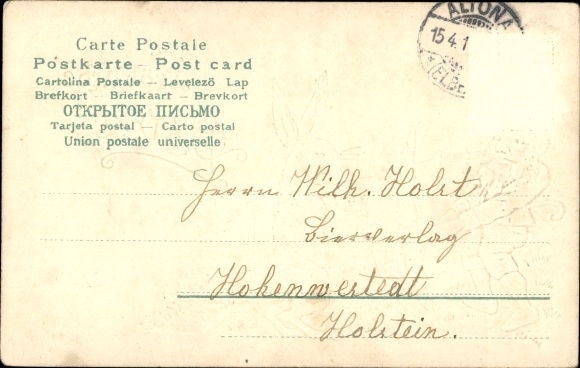 Carte Postale
Postkarte - Post card
Cartolina Postale - Levelező Lap
Brefkort - Briefkaart - Brevkort
ОТКРЫТОЕ ПИСЬМО
Tarjeta postal - Carto postal
Union postale universelle
ALTONA
15.4.1
(ELBE
Herrn Wilh. Holst
Bierverlag
Hohenwestedt
Holstein.